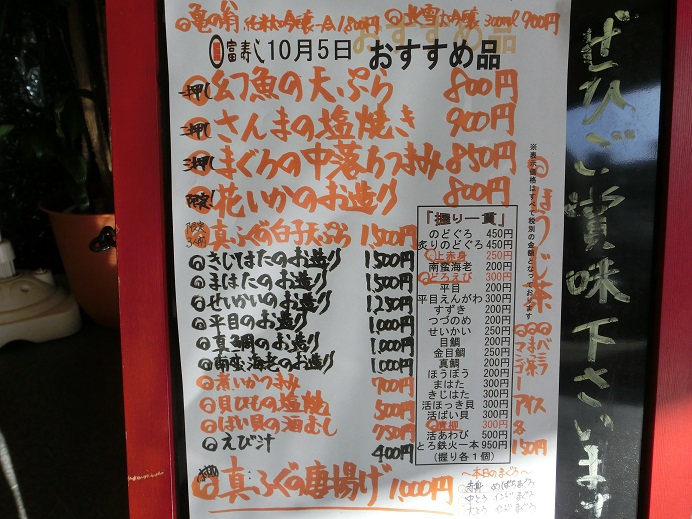 亀の翁 純米大吟醸 一合 1,800円
北雪大吟醸 300ml 900円
富寿し 10月5日 おすすめ品
一押し 幻魚の天ぷら 800円
二押し さんまの塩焼き 900円
三押し まぐろの中落ちつまみ 850円
限定! 花いかのお造り 800円
限定3個 真ふぐの白子天ぷら 1,500円
きじはたのお造り 1,500円
まはたのお造り 1,500円
せいかいのお造り 1,250円
平目のお造り 1,000円
真鯛のお造り 1,000円
南蛮海老のお造り 1,000円
煮いかつまみ 700円
貝ひもの塩焼 500円
ばい貝の酒むし 750円
えび汁 400円
真ふぐの唐揚げ 1,000円
「握り一貫」
のどぐろ 450円
炙りのどぐろ 450円
上赤身 250円
南蛮海老 200円
どろえび 300円
平目 200円
平目えんがわ 300円
すずき 200円
つづのめ 200円
せいかい 250円
目鯛 200円
金目鯛 250円
真鯛 200円
ほうぼう 200円
まはた 300円
きじはた 300円
活ほっき貝 300円
活ばい貝 300円
青柳 300円
活あわび 500円
とろ鉄火一本 950円
(握り各1個)
~本日のまぐろ~
赤身 めばちまぐろ
中とろ インドまぐろ
大とろ インドまぐろ
※表示価格はすべて税別の金額となっております
ほうじ茶
バニラ
マンゴー
アイス
各150円
ぜひご賞味下さいませ